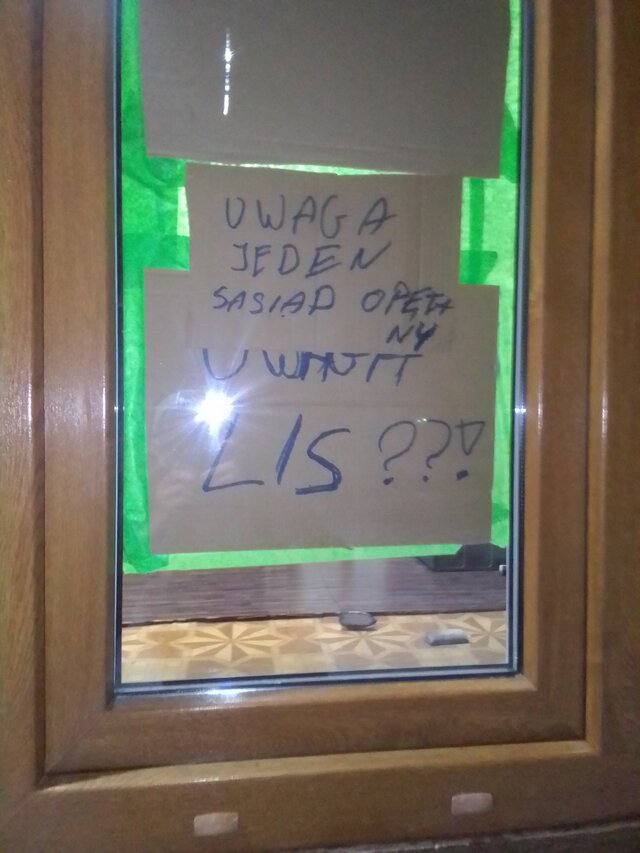 UWAGA
JEDEN
SASIAD OPĘTA
NY
LIS ??!